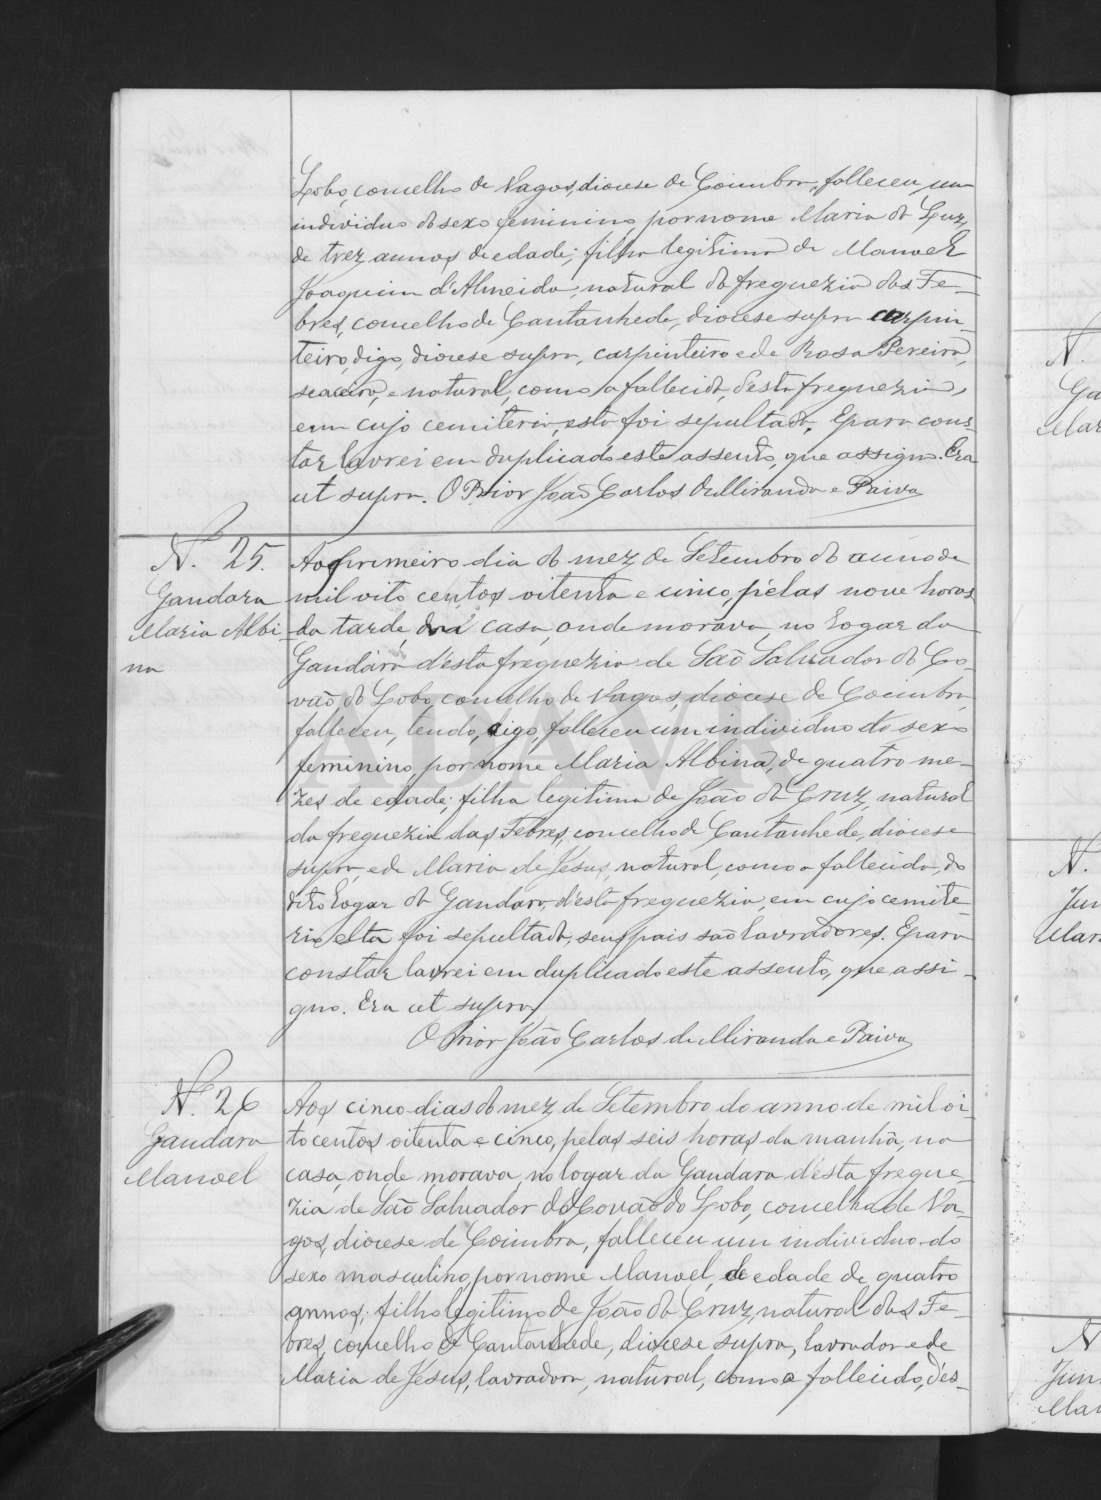 Lobo, concelho de Vagos, diocese de Coimbra, falleceu um
individuo do sexo feminino por nome Maria da Luz,
de trez annos de edade; filha legitima de Manoel
Joaquim d'Almeida, natural da freguezia das Fe-
bres, concelho de Cantanhede, diocese supra carpin-
teiro, digo, diocese supra, carpinteiro e de Rosa Pereira,
e natural, como a fallecida, d'esta freguezia,
em cujo cemiterio, esta foi sepultada. E para cons-
tar lavrei em duplicado este assento, que assigno. Era
ut supra. O Prior João Carlos de Miranda e Paiva
N.º 25.
Gandara
Maria Albi-
na
Ao primeiro dia do mez de Setembro do anno de
mil oito centos oitenta e cinco, pélas nove horas
da tarde, na casa, onde morava, no logar da
Gandára d'esta freguezia de São Salvador do Co-
vão do Lobo, concelho de Vagos, diocese de Coimbra,
falleceu, tendo, digo, falleceu um individuo do sexo
feminino, por nome Maria Albina, de quatro me-
zes de edade; filha legitima de João da Cruz, natural
da freguezia das Febres, concelho de Cantanhede, diocese
supra, e de Maria de Jesus, natural, como a fallecida, do
dito logar da Gandara, d'esta freguezia, em cujo cemite-
rio ella foi sepultada, seus pais são lavradores. E para
constar lavrei em duplicado este assento, que assi-
gno. Era ut supra
O Prior João Carlos de Miranda e Paiva
N.º 26
Gandara
Manoel
Aos cinco dias do mez de Setembro do anno de mil oi-
tocentos oitenta e cinco, pelas seis horas da manhã, na
casa, onde morava, no logar da Gandara d'esta fregue-
zia de São Salvador do Covão do Lobo, concelho de Va-
gos, diocese de Coimbra, falleceu um individuo do
sexo masculino, por nome Manoel, de edade de quatro
annos; filho legitimo de João da Cruz, natural das Fe-
bres, concelho de Cantanhede, diocese supra, lavrador e de
Maria de Jesus, lavradora, natural, como o fallecido, d'es-
N.
Ga
Mar
N.
Jun
Mar
N
Jun
Mar
ADAVR